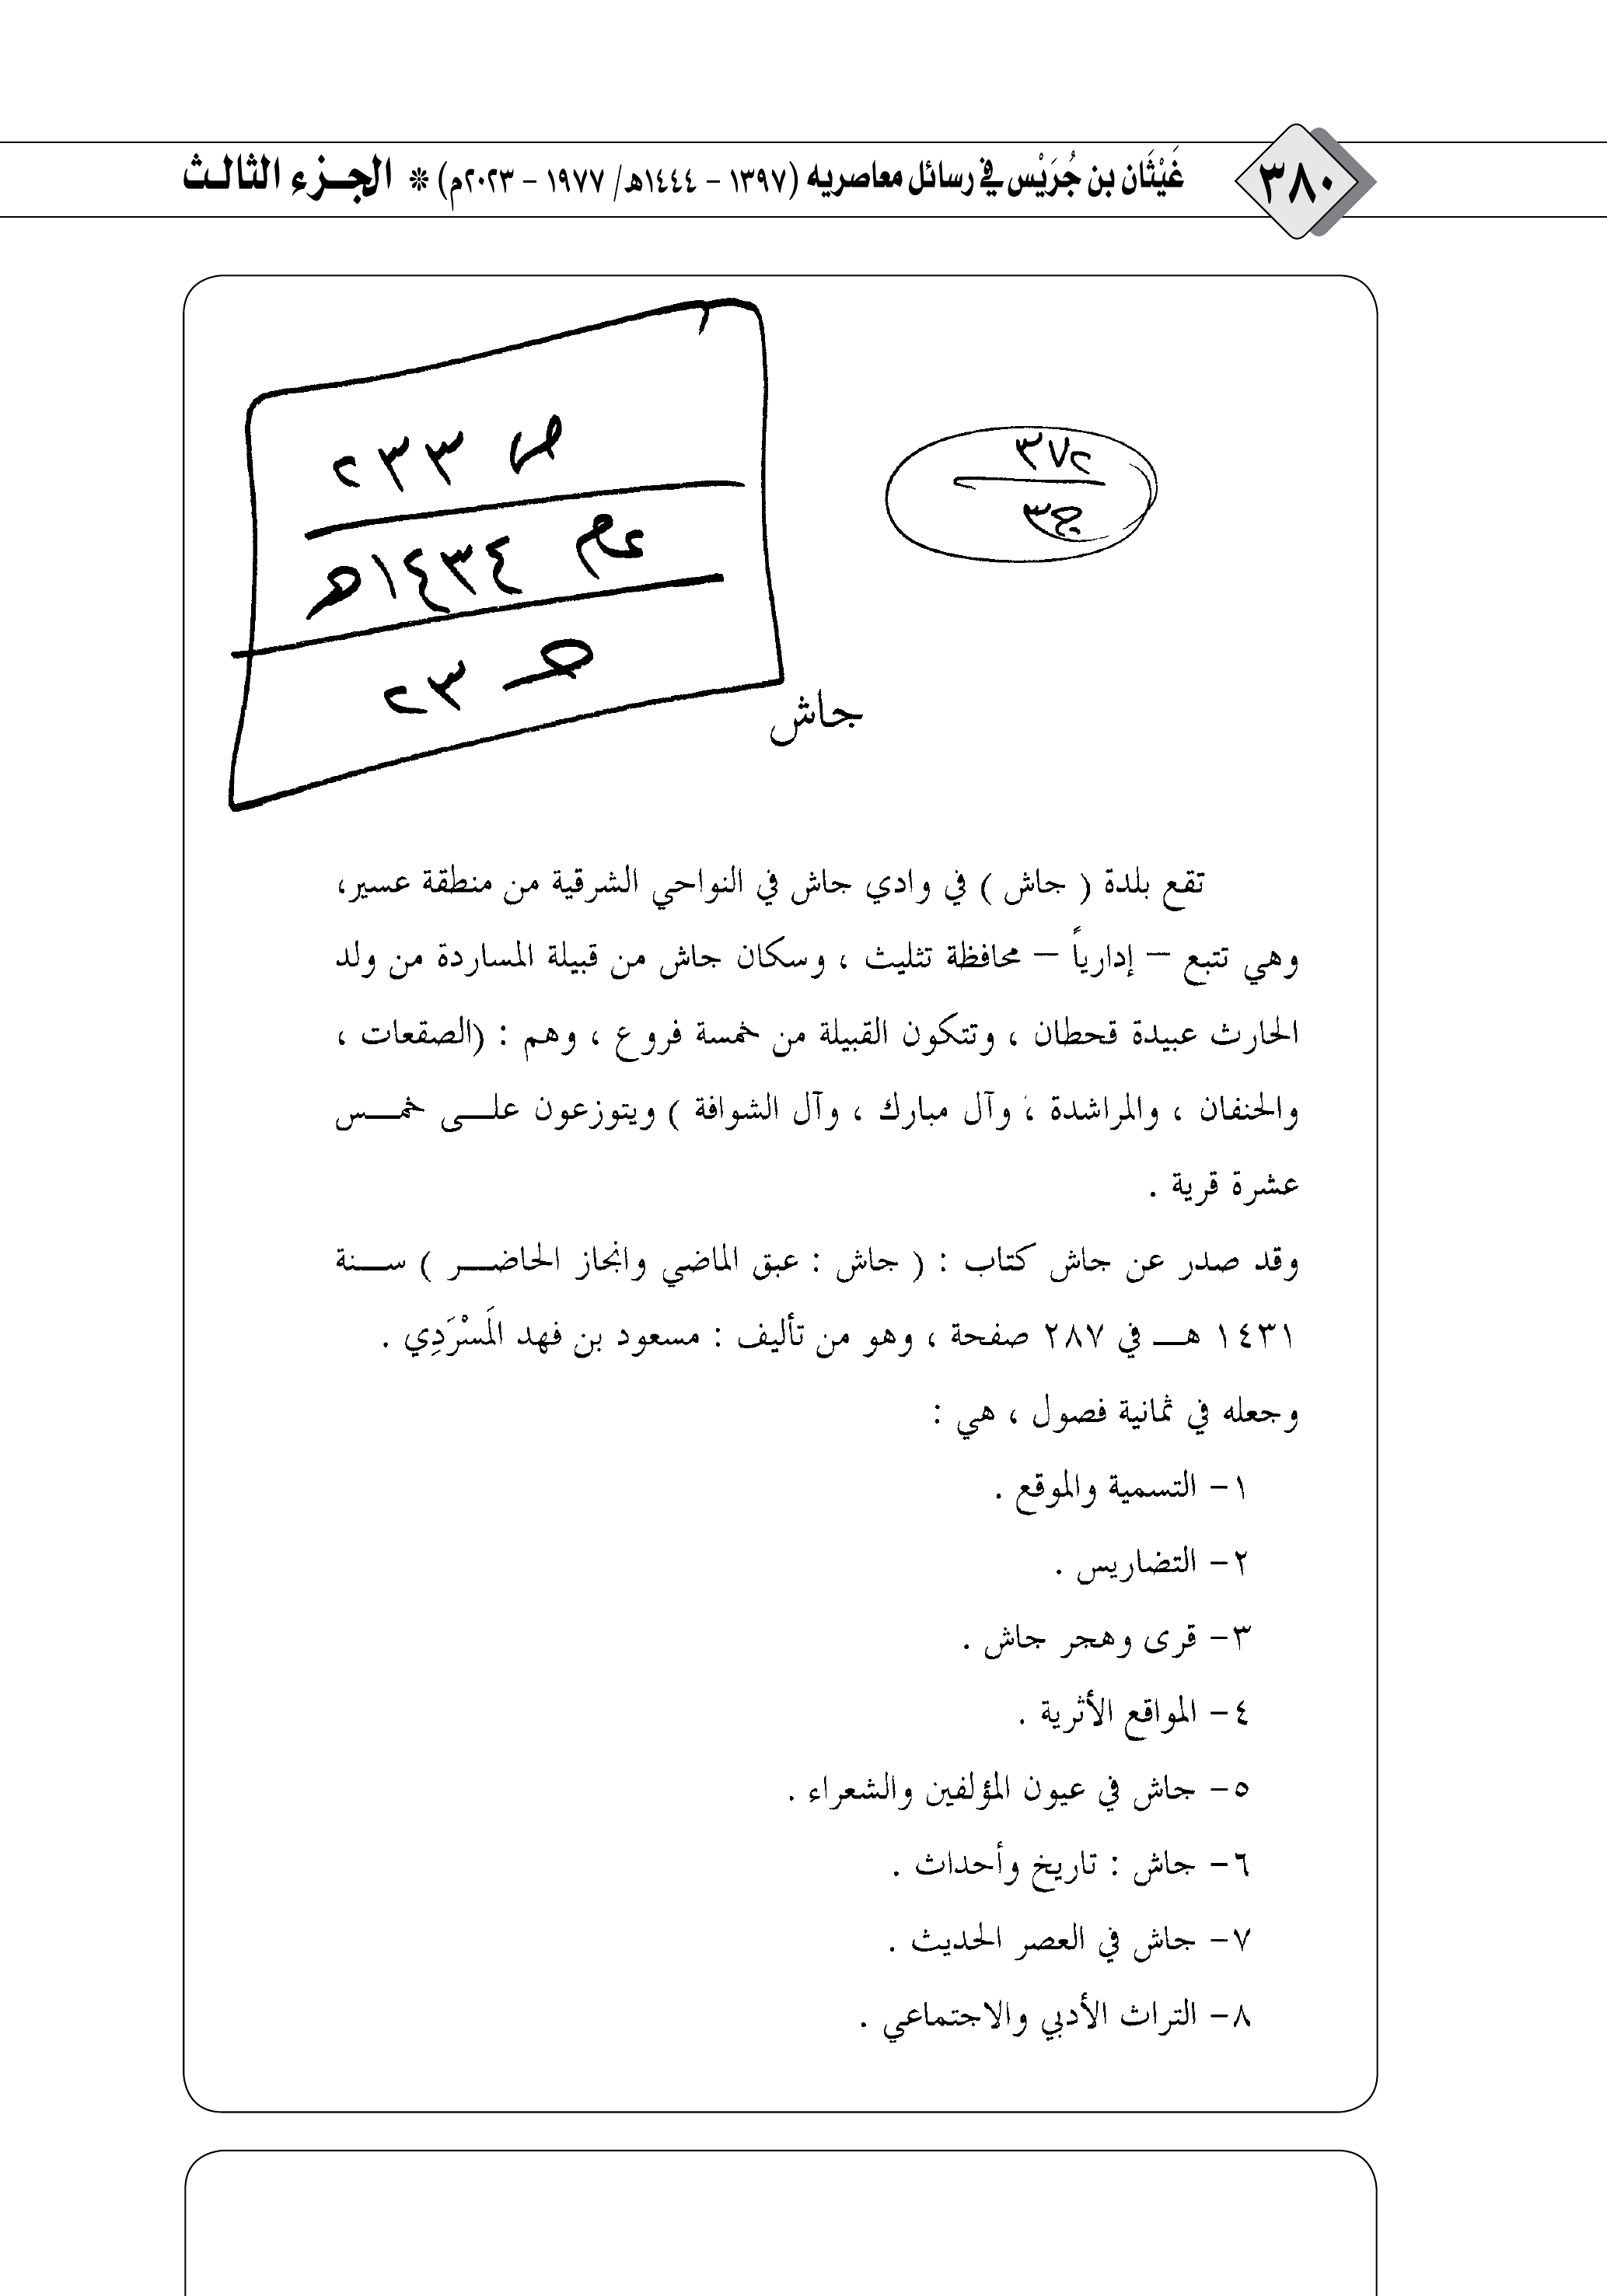 ٣٨٠
غَيْثَان بن جُرَيْس في رسائل معاصريه (١٣٩٧ – ١٤٤٤هـ/ ١٩٧٧ – ٢٠٢٣م) * الجـزء الثالـث
٣٧٢
ج٣
ص ٢٣٣
عام ١٤٣٤هـ
صـ ٢٣
جاش
تقع بلدة ( جاش ) في وادي جاش في النواحي الشرقية من منطقة عسير،
وهي تتبع – إدارياً – محافظة تثليث ، وسكان جاش من قبيلة المساردة من ولد
الحارث عبيدة قحطان ، وتتكون القبيلة من خمسة فروع ، وهم : (الصقعات ،
والحنفان ، والمراشدة ، وآل مبارك ، وآل الشوافة ) ويتوزعون علــى خمــس
عشرة قرية .
وقد صدر عن جاش كتاب : ( جاش : عبق الماضي وانجاز الحاضــر ) ســنة
١٤٣١ هــ في ٢٨٧ صفحة ، وهو من تأليف : مسعود بن فهد المَسْرَدِي .
وجعله في ثمانية فصول ، هي :
١- التسمية والموقع .
٢- التضاريس .
٣- قرى وهجر جاش .
٤- المواقع الأثرية .
٥- جاش في عيون المؤلفين والشعراء .
٦- جاش : تاريخ وأحداث .
٧- جاش في العصر الحديث .
٨- التراث الأدبي والاجتماعي .